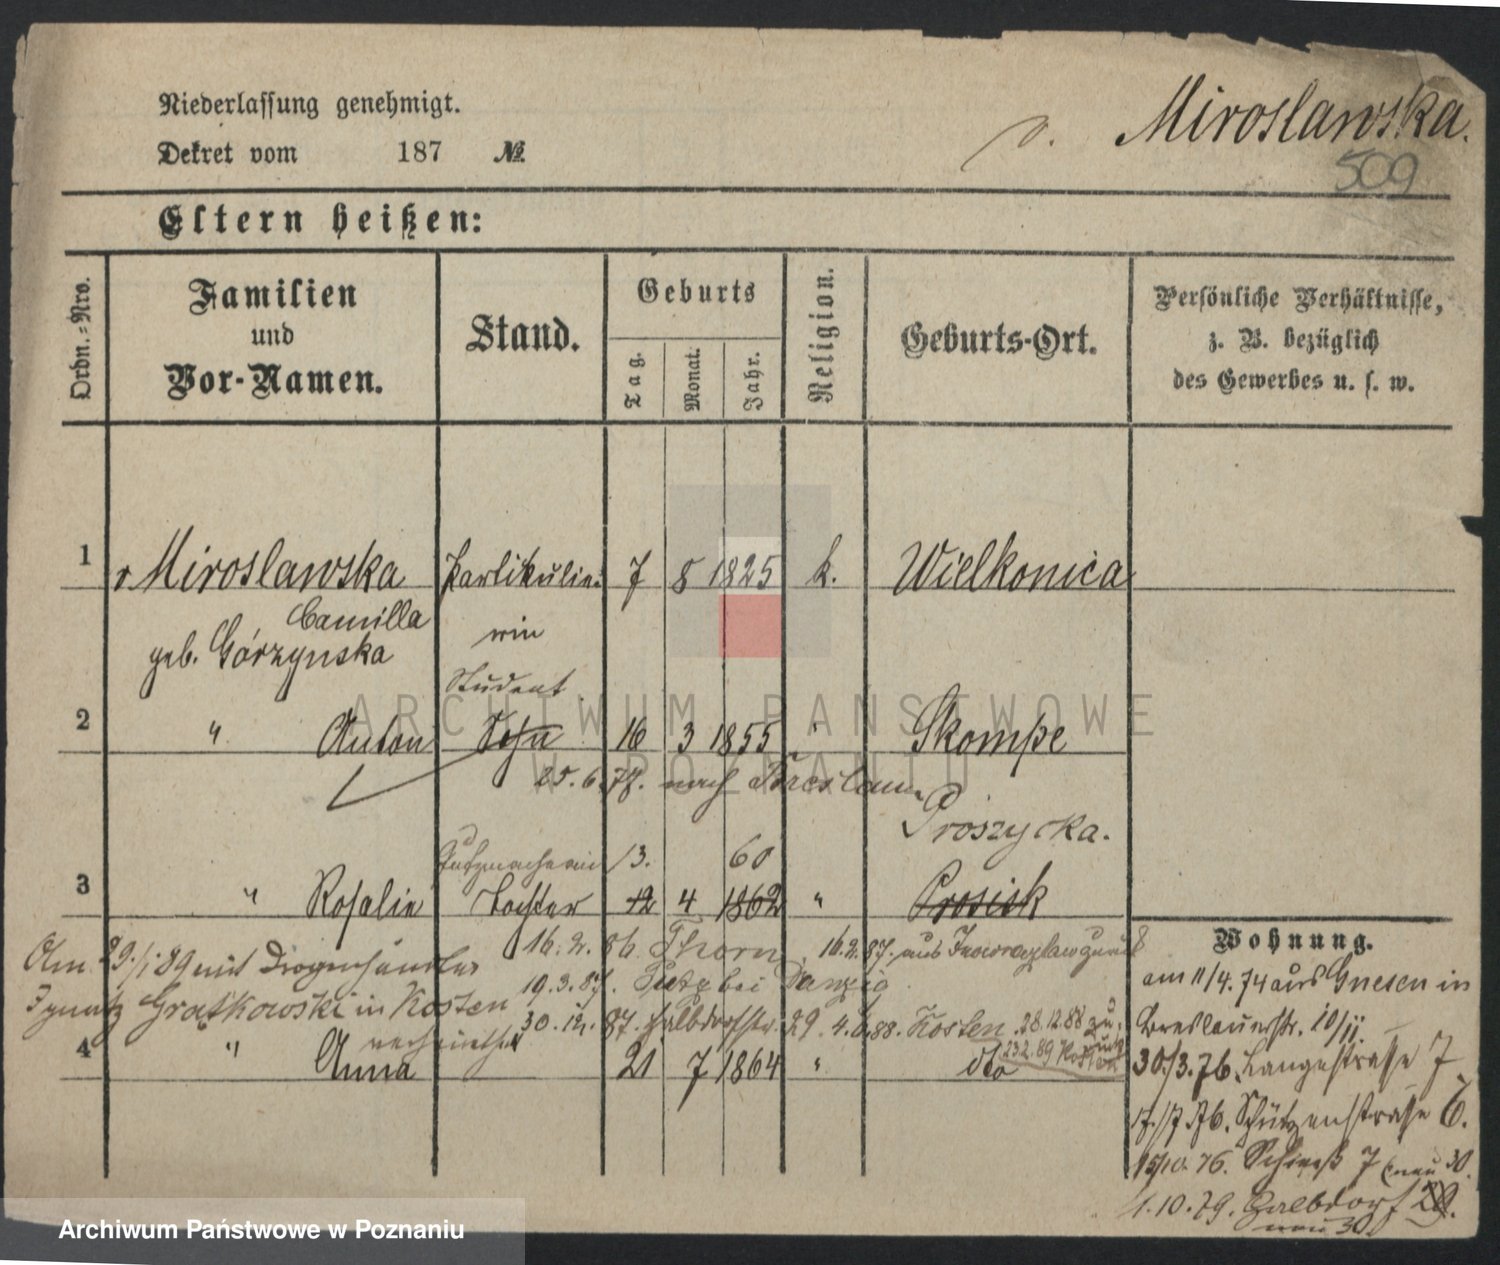 Niederlassung genehmigt.
Dekret vom 187 №
v. Miroslawska.
509
Eltern heißen:
Ordn.=Nro.
Familien
und
Vor-Namen.
Stand.
Geburts
Tag.
Monat.
Jahr.
Religion.
Geburts-Ort.
Persönliche Verhältnisse,
z. B. bezüglich
des Gewerbes u. s. w.
1 v Miroslawska Partikulie- 7 8 1825 k. Wielkonica
Camilla rin
geb. Górzynska
Student
2 " Anton Sohn 16 3 1855 " Skompe
25.6.77. nach Breslau
Proszycka.
Putzmacherin 13. 60
3 " Rosalie Tochter 12 4 1862 " Prosisk
Am 29./1 89 mit Drogenhändler
Ignatz Gratkowski in Kosten
verheirathet
16.2.86 Thorn. 16.2.87. aus Inowrazlaw zurück
19.3.87. Danzig
30.12.87. Halbdorfstr. 29. 4.6.88. Kosten 28.12.88 zurück
23.2.89 Kosten
4 " Anna 21 7 1864 " dto
Wohnung.
am 11/4.74 aus Gnesen in
Breslauerstr. 10/11.
30./3.76. Langestrasse 7
17./7.76. Schützenstrasse 6.
15/10.76. 7 (neu 30.
1.10.79. Halbdorf 29.
neu 30.
ARCHIWUM PAŃSTWOWE
W POZNANIU
Archiwum Państwowe w Poznaniu